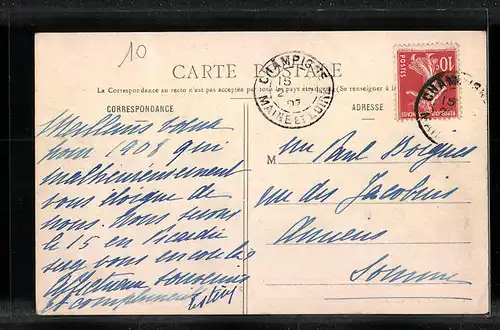 10
CARTE POSTALE
La Correspondance au recto n'est pas acceptée par tous les pays étrangers (Se renseigner à la
CORRESPONDANCE
ADRESSE
CHAMPIGNE
15
2
07
MAINE ET LOIRE
10c
POSTES
Meilleurs vœux
pour 1908 qui
malheureusement
vous éloigne de
nous. Nous serons
le 15 en
vous
Affectueux souvenirs
et compliments
M
Paul
rue des Jacobins
Amiens
Somme